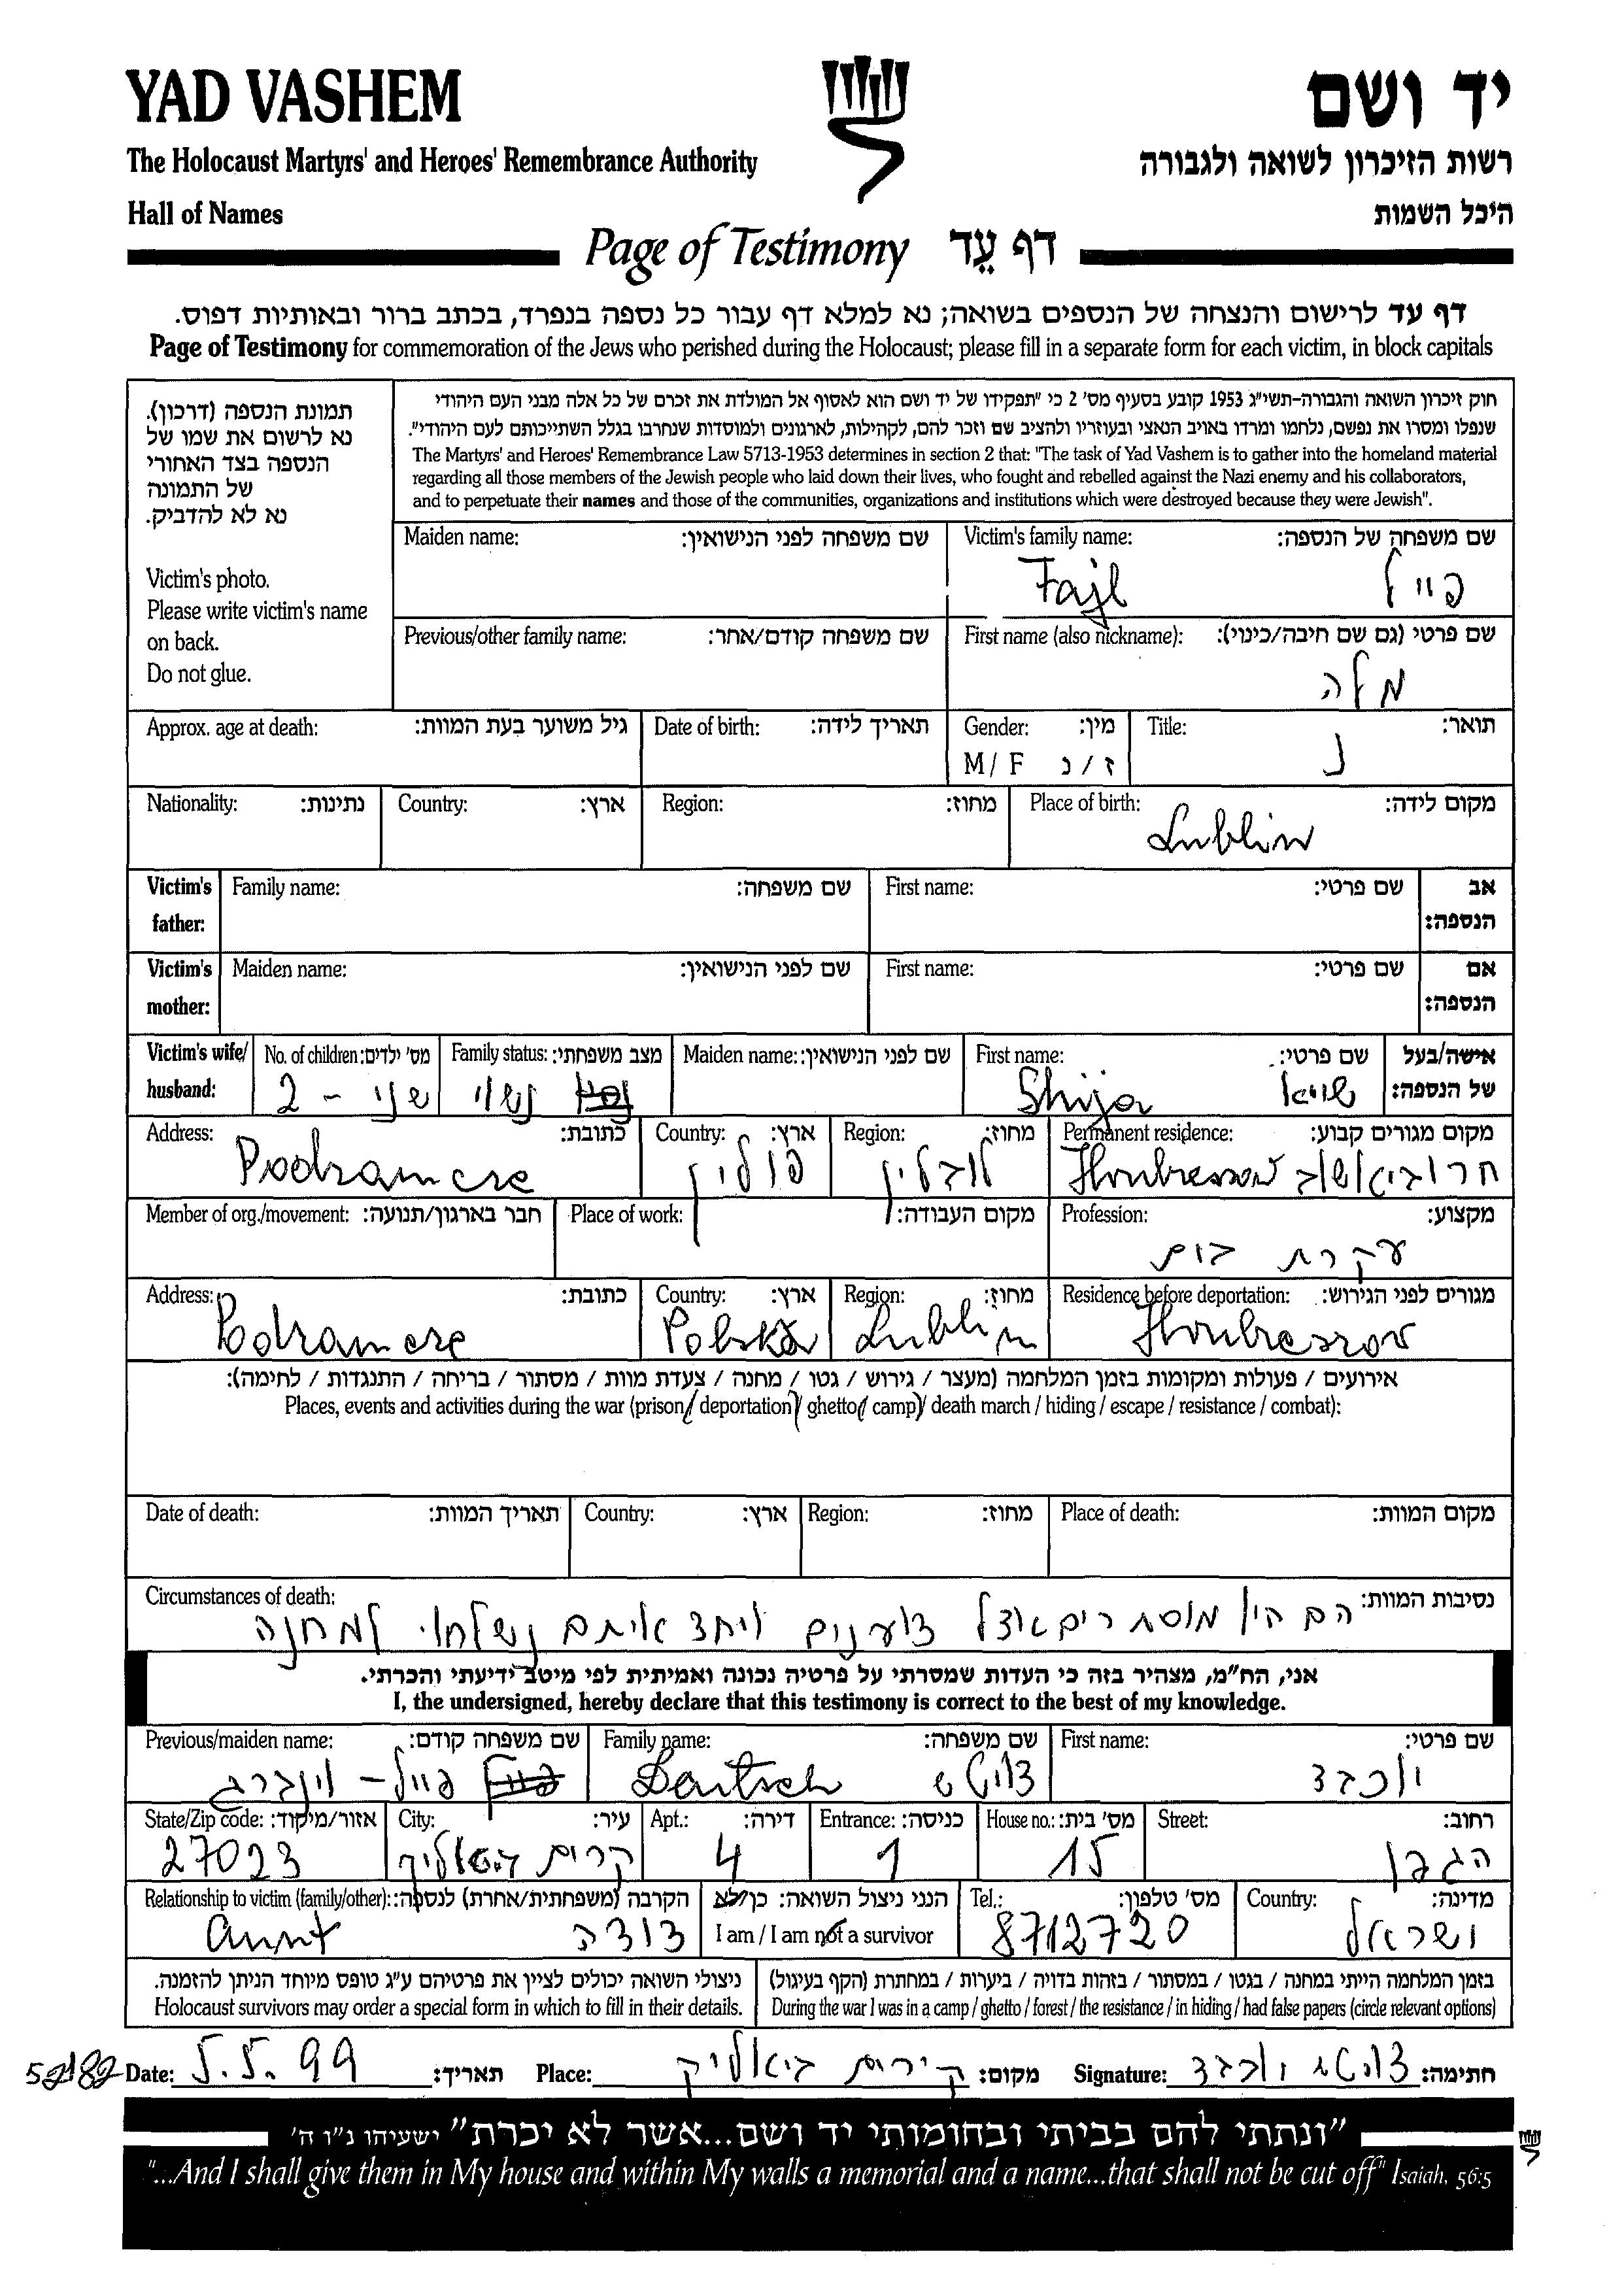 YAD VASHEM
יד ושם
The Holocaust Martyrs' and Heroes' Remembrance Authority
רשות הזיכרון לשואה ולגבורה
Hall of Names
היכל השמות
Page of Testimony דף עֵד
דף עד לרישום והנצחה של הנספים בשואה; נא למלא דף עבור כל נספה בנפרד, בכתב ברור ובאותיות דפוס.
Page of Testimony for commemoration of the Jews who perished during the Holocaust; please fill in a separate form for each victim, in block capitals
תמונת הנספה (דרכון).
נא לרשום את שמו של
הנספה בצד האחורי
של התמונה
נא לא להדביק.
Victim's photo.
Please write victim's name
on back.
Do not glue.
חוק זיכרון השואה והגבורה-תשי"ג 1953 קובע בסעיף מס' 2 כי "תפקידו של יד ושם הוא לאסוף אל המולדת את זכרם של כל אלה מבני העם היהודי
שנפלו ומסרו את נפשם, נלחמו ומרדו באויב הנאצי ובעוזריו ולהציב שם וזכר להם, לקהילות, לארגונים ולמוסדות שנחרבו בגלל השתייכותם לעם היהודי".
The Martyrs' and Heroes' Remembrance Law 5713-1953 determines in section 2 that: "The task of Yad Vashem is to gather into the homeland material
regarding all those members of the Jewish people who laid down their lives, who fought and rebelled against the Nazi enemy and his collaborators,
and to perpetuate their names and those of the communities, organizations and institutions which were destroyed because they were Jewish".
Maiden name: שם משפחה לפני הנישואין: Victim's family name: שם משפחה של הנספה:
Fajl פייל
Previous/other family name: שם משפחה קודם/אחר: First name (also nickname): שם פרטי (גם שם חיבה/כינוי):
מלה
Approx. age at death: גיל משוער בעת המוות: Date of birth: תאריך לידה: Gender: מין: Title: תואר:
M / F ז / נ נ
Nationality: נתינות: Country: ארץ: Region: מחוז: Place of birth: מקום לידה:
Lublin
Victim's father: Family name: שם משפחה: First name: שם פרטי: אב הנספה:
Victim's mother: Maiden name: שם לפני הנישואין: First name: שם פרטי: אם הנספה:
Victim's wife/ husband: No. of children: מס' ילדים: Family status: מצב משפחתי: Maiden name: שם לפני הנישואין: First name: שם פרטי: אישה/בעל של הנספה:
שני - 2 נשוי Shija שייא
Address: כתובת: Country: ארץ: Region: מחוז: Permanent residence: מקום מגורים קבוע:
Podramcre פולין לובלין Hrubessow חרוביאשוב
Member of org./movement: חבר בארגון/תנועה: Place of work: מקום העבודה: Profession: מקצוע:
עקרת בית
Address: כתובת: Country: ארץ: Region: מחוז: Residence before deportation: מגורים לפני הגירוש:
Podramcre Polska Lublin Hrubessow
אירועים / פעולות ומקומות בזמן המלחמה (מעצר / גירוש / גטו / מחנה / צעדת מוות / מסתור / בריחה / התנגדות / לחימה):
Places, events and activities during the war (prison / deportation / ghetto / camp / death march / hiding / escape / resistance / combat):
Date of death: תאריך המוות: Country: ארץ: Region: מחוז: Place of death: מקום המוות:
Circumstances of death: נסיבות המוות:
הם היו מוסתרים אצל צוענים ויחד איתם נשלחו למחנה
אני, הח"מ, מצהיר בזה כי העדות שמסרתי על פרטיה נכונה ואמיתית לפי מיטב ידיעתי והכרתי.
I, the undersigned, hereby declare that this testimony is correct to the best of my knowledge.
Previous/maiden name: שם משפחה קודם: Family name: שם משפחה: First name: שם פרטי:
פייל - וינברג Deutsch דויטש יוכבד
State/Zip code: אזור/מיקוד: City: עיר: Apt.: דירה: Entrance: כניסה: House no.: מס' בית: Street: רחוב:
27023 קרית ביאליק 4 1 15 הגפן
Relationship to victim (family/other): הקרבה (משפחתית/אחרת) לנספה: הנני ניצול השואה: כן/לא Tel.: מס' טלפון: Country: מדינה:
aunt דודה I am / I am not a survivor 8712720 ישראל
ניצולי השואה יכולים לציין את פרטיהם ע"ג טופס מיוחד הניתן להזמנה.
Holocaust survivors may order a special form in which to fill in their details.
בזמן המלחמה הייתי במחנה / בגטו / במסתור / בזהות בדויה / ביערות / במחתרת (הקף בעיגול)
During the war I was in a camp / ghetto / forest / the resistance / in hiding / had false papers (circle relevant options)
Date: 5.5.99 תאריך: Place: קירית ביאליק מקום: Signature: דויטש יוכבד חתימה:
"ונתתי להם בביתי ובחומותי יד ושם...אשר לא יכרת" ישעיהו נ"ו ה'
"...And I shall give them in My house and within My walls a memorial and a name...that shall not be cut off" Isaiah, 56:5